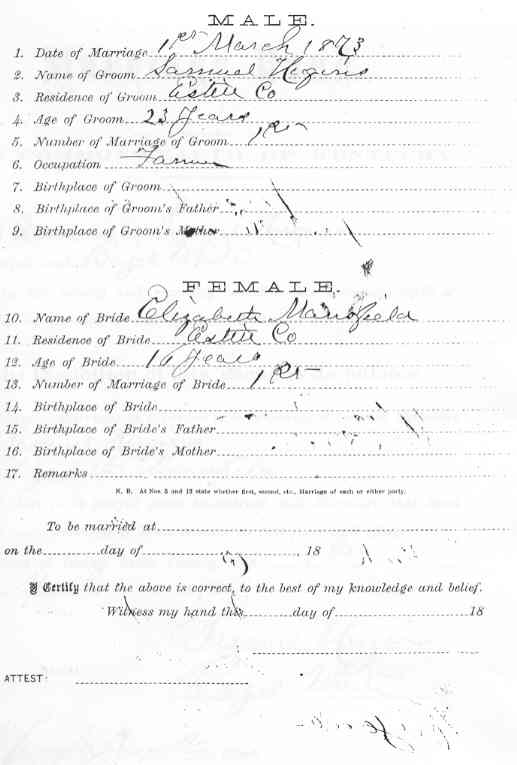 MALE.
1. Date of Marriage 1st March 1873
2. Name of Groom Samuel
3. Residence of Groom Estill Co
4. Age of Groom 23 years
5. Number of Marriage of Groom 1st
6. Occupation Farmer
7. Birthplace of Groom
8. Birthplace of Groom's Father
9. Birthplace of Groom's Mother
FEMALE.
10. Name of Bride Elizabeth Mansfield
11. Residence of Bride Estill Co
12. Age of Bride years
13. Number of Marriage of Bride 1st
14. Birthplace of Bride
15. Birthplace of Bride's Father
16. Birthplace of Bride's Mother
17. Remarks
N. B. At Nos. 5 and 13 state whether first, second, etc., Marriage of each or either party.
To be married at
on the day of , 18
I Certify that the above is correct, to the best of my knowledge and belief.
Witness my hand this day of 18
ATTEST: